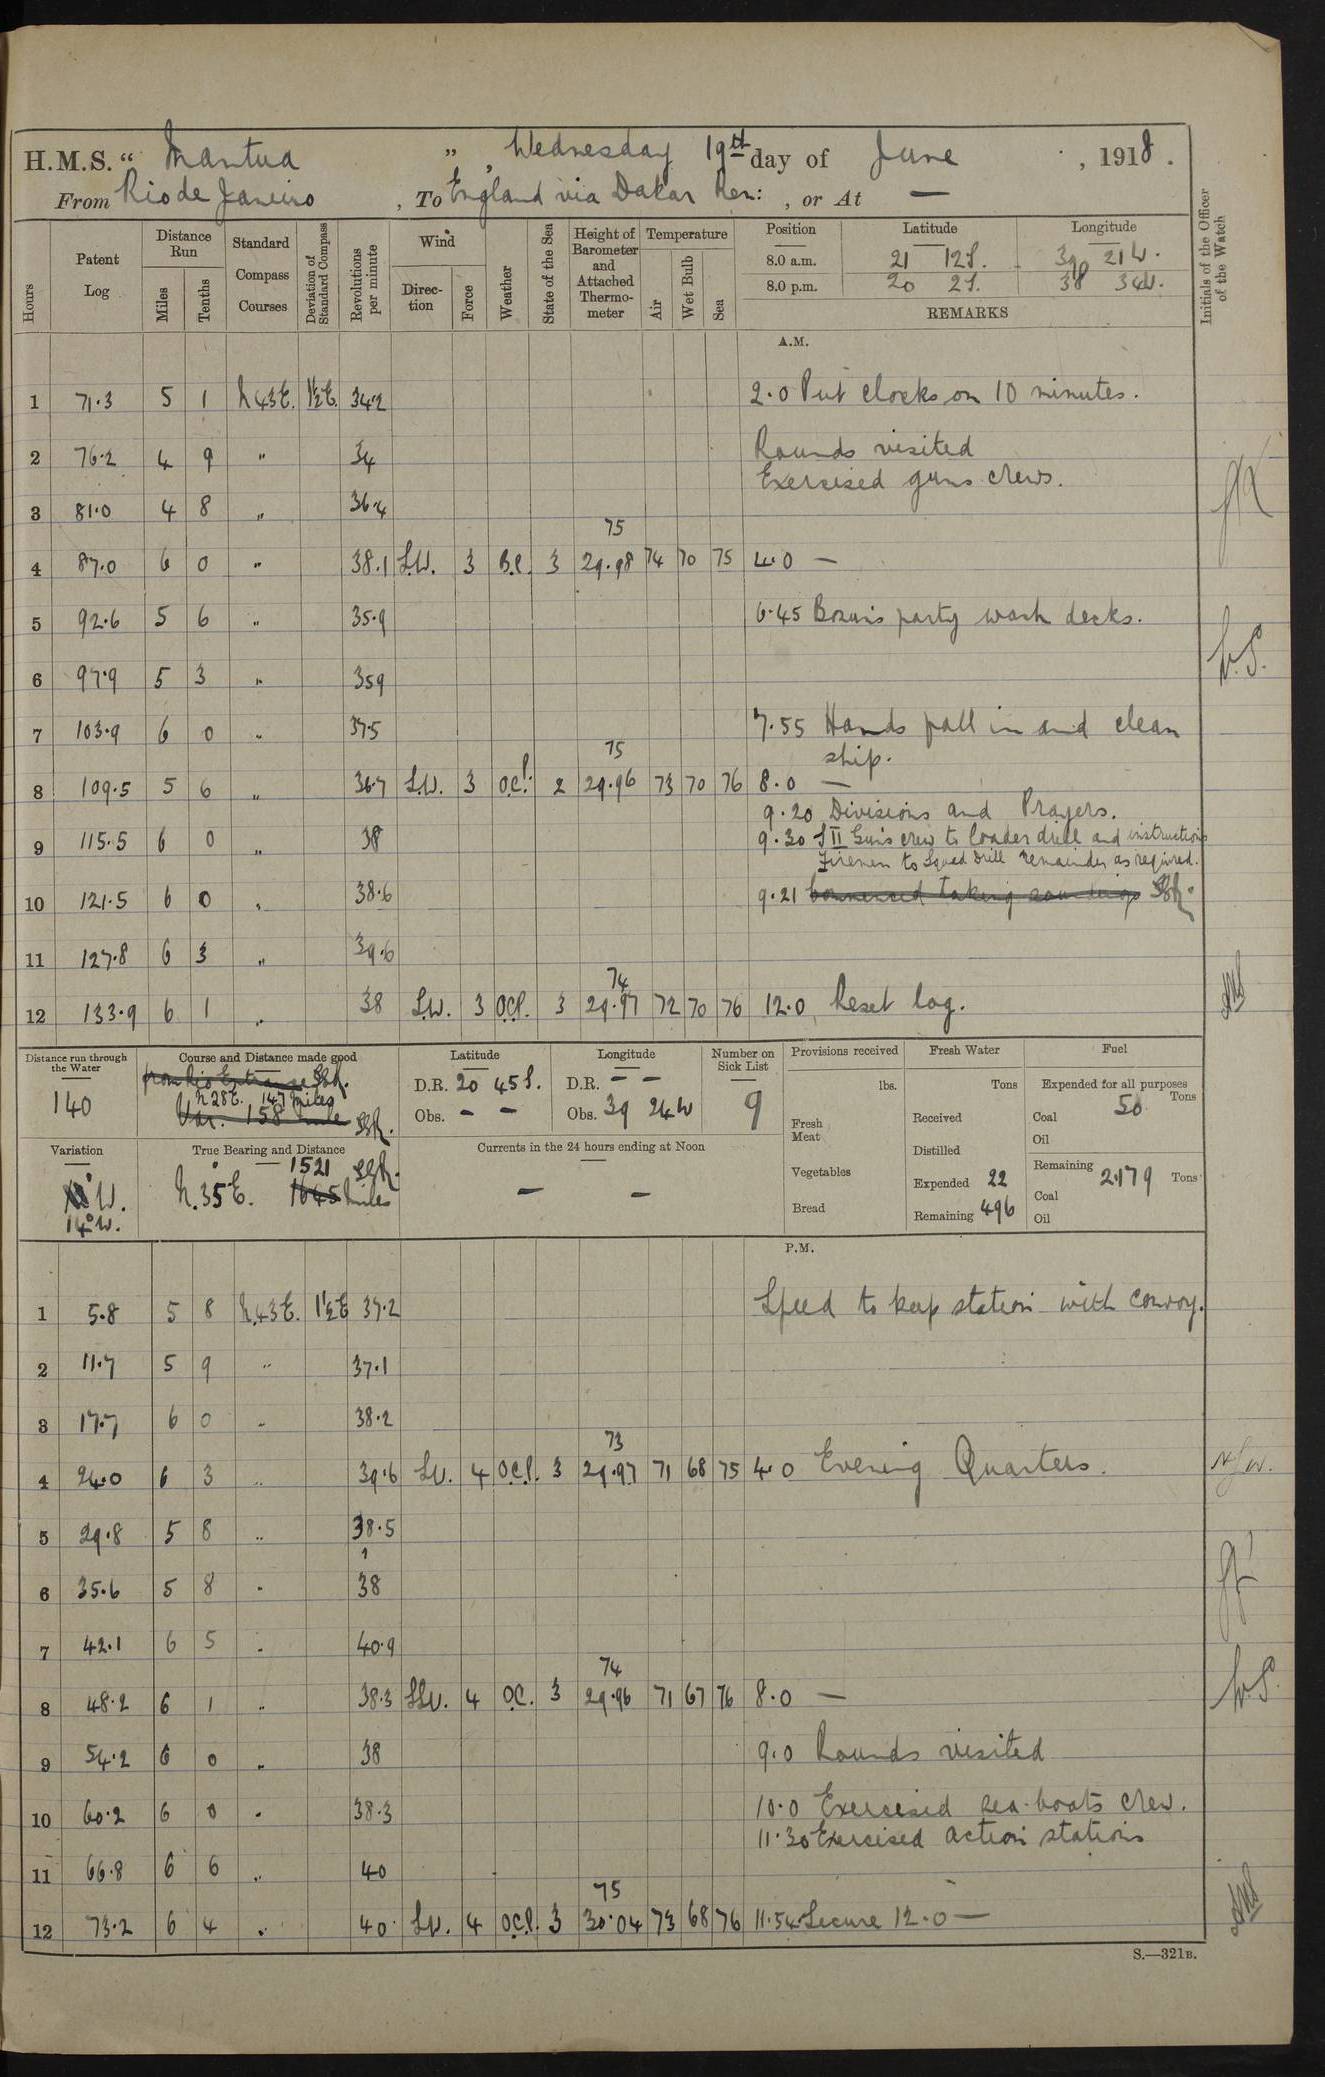 H.M.S. “ Mantua ” , Wednesday 19th day of June , 1918 .
From Rio de Janeiro , To England via Dakar Ren: , or At —
Hours Patent Log Distance Run Miles Tenths Standard Compass Courses Deviation of Standard Compass Revolutions per minute Wind Direction Force Weather State of the Sea Height of Barometer and Attached Thermometer Temperature Air Wet Bulb Sea Position Latitude Longitude Initials of the Officer of the Watch
8.0 a.m. 21 12 S. 39 21 W.
8.0 p.m. 20 2 S. 38 34 W.
REMARKS
A.M.
1 71.3 5 1 N43E. 1½E. 34.2 2.0 Put clocks on 10 minutes.
2 76.2 4 9 " 34 Rounds visited
Exercised guns crews.
3 81.0 4 8 " 36.4
75
4 87.0 6 0 " 38.1 S.W. 3 B.C. 3 29.98 74 70 75 4.0 —
5 92.6 5 6 " 35.9 6.45 Bosun's party wash decks.
6 97.9 5 3 " 359
7 103.9 6 0 " 37.5 7.55 Hands fall in and clean
75 ship.
8 109.5 5 6 " 36.7 S.W. 3 O.C.P. 2 29.96 73 70 76 8.0 —
9.20 Divisions and Prayers.
9 115.5 6 0 " 38 9.30 S II Gun's crew to loader drill and instructions
Firemen to Squad drill remainder as required.
10 121.5 6 0 " 38.6 9.21 commenced taking soundings
11 127.8 6 3 " 39.6
74
12 133.9 6 1 " 38 S.W. 3 O.C.P. 3 29.97 72 70 76 12.0 Reset log.
Distance run through the Water Course and Distance made good Latitude Longitude Number on Sick List Provisions received Fresh Water Fuel
140 from Rio Entrance
N28E. 147 miles
Var. 158 mile
D.R. 20 45 S. D.R. — —
Obs. — — Obs. 39 24 W 9
lbs. Tons Expended for all purposes Tons
Fresh Meat Received Coal 50
Oil
Variation True Bearing and Distance Currents in the 24 hours ending at Noon Distilled
W. 14° W. 1521
N.35E. 1645 miles — —
Vegetables Expended 22 Remaining 2179 Tons
Coal
Bread Remaining 496 Oil
P.M.
1 5.8 5 8 N.43E. 1½E 37.2 Speed to keep station with convoy.
2 11.7 5 9 " 37.1
3 17.7 6 0 " 38.2
73
4 24.0 6 3 " 39.6 S.W. 4 O.C.P. 3 29.97 71 68 75 4.0 Evening Quarters.
5 29.8 5 8 " 38.5
6 35.6 5 8 " 38
7 42.1 6 5 " 40.9
74
8 48.2 6 1 " 38.3 SSW. 4 O.C. 3 29.96 71 67 76 8.0 — W.S.
9 54.2 6 0 " 38 9.0 Rounds visited
10 60.2 6 0 " 38.3 10.0 Exercised sea-boats crew.
11.30 Exercised action stations
11 66.8 6 6 " 40
75
12 73.2 6 4 " 40 S.W. 4 O.C.P. 3 30.04 73 68 76 11.54 Secure 12.0 —
S.—321B.